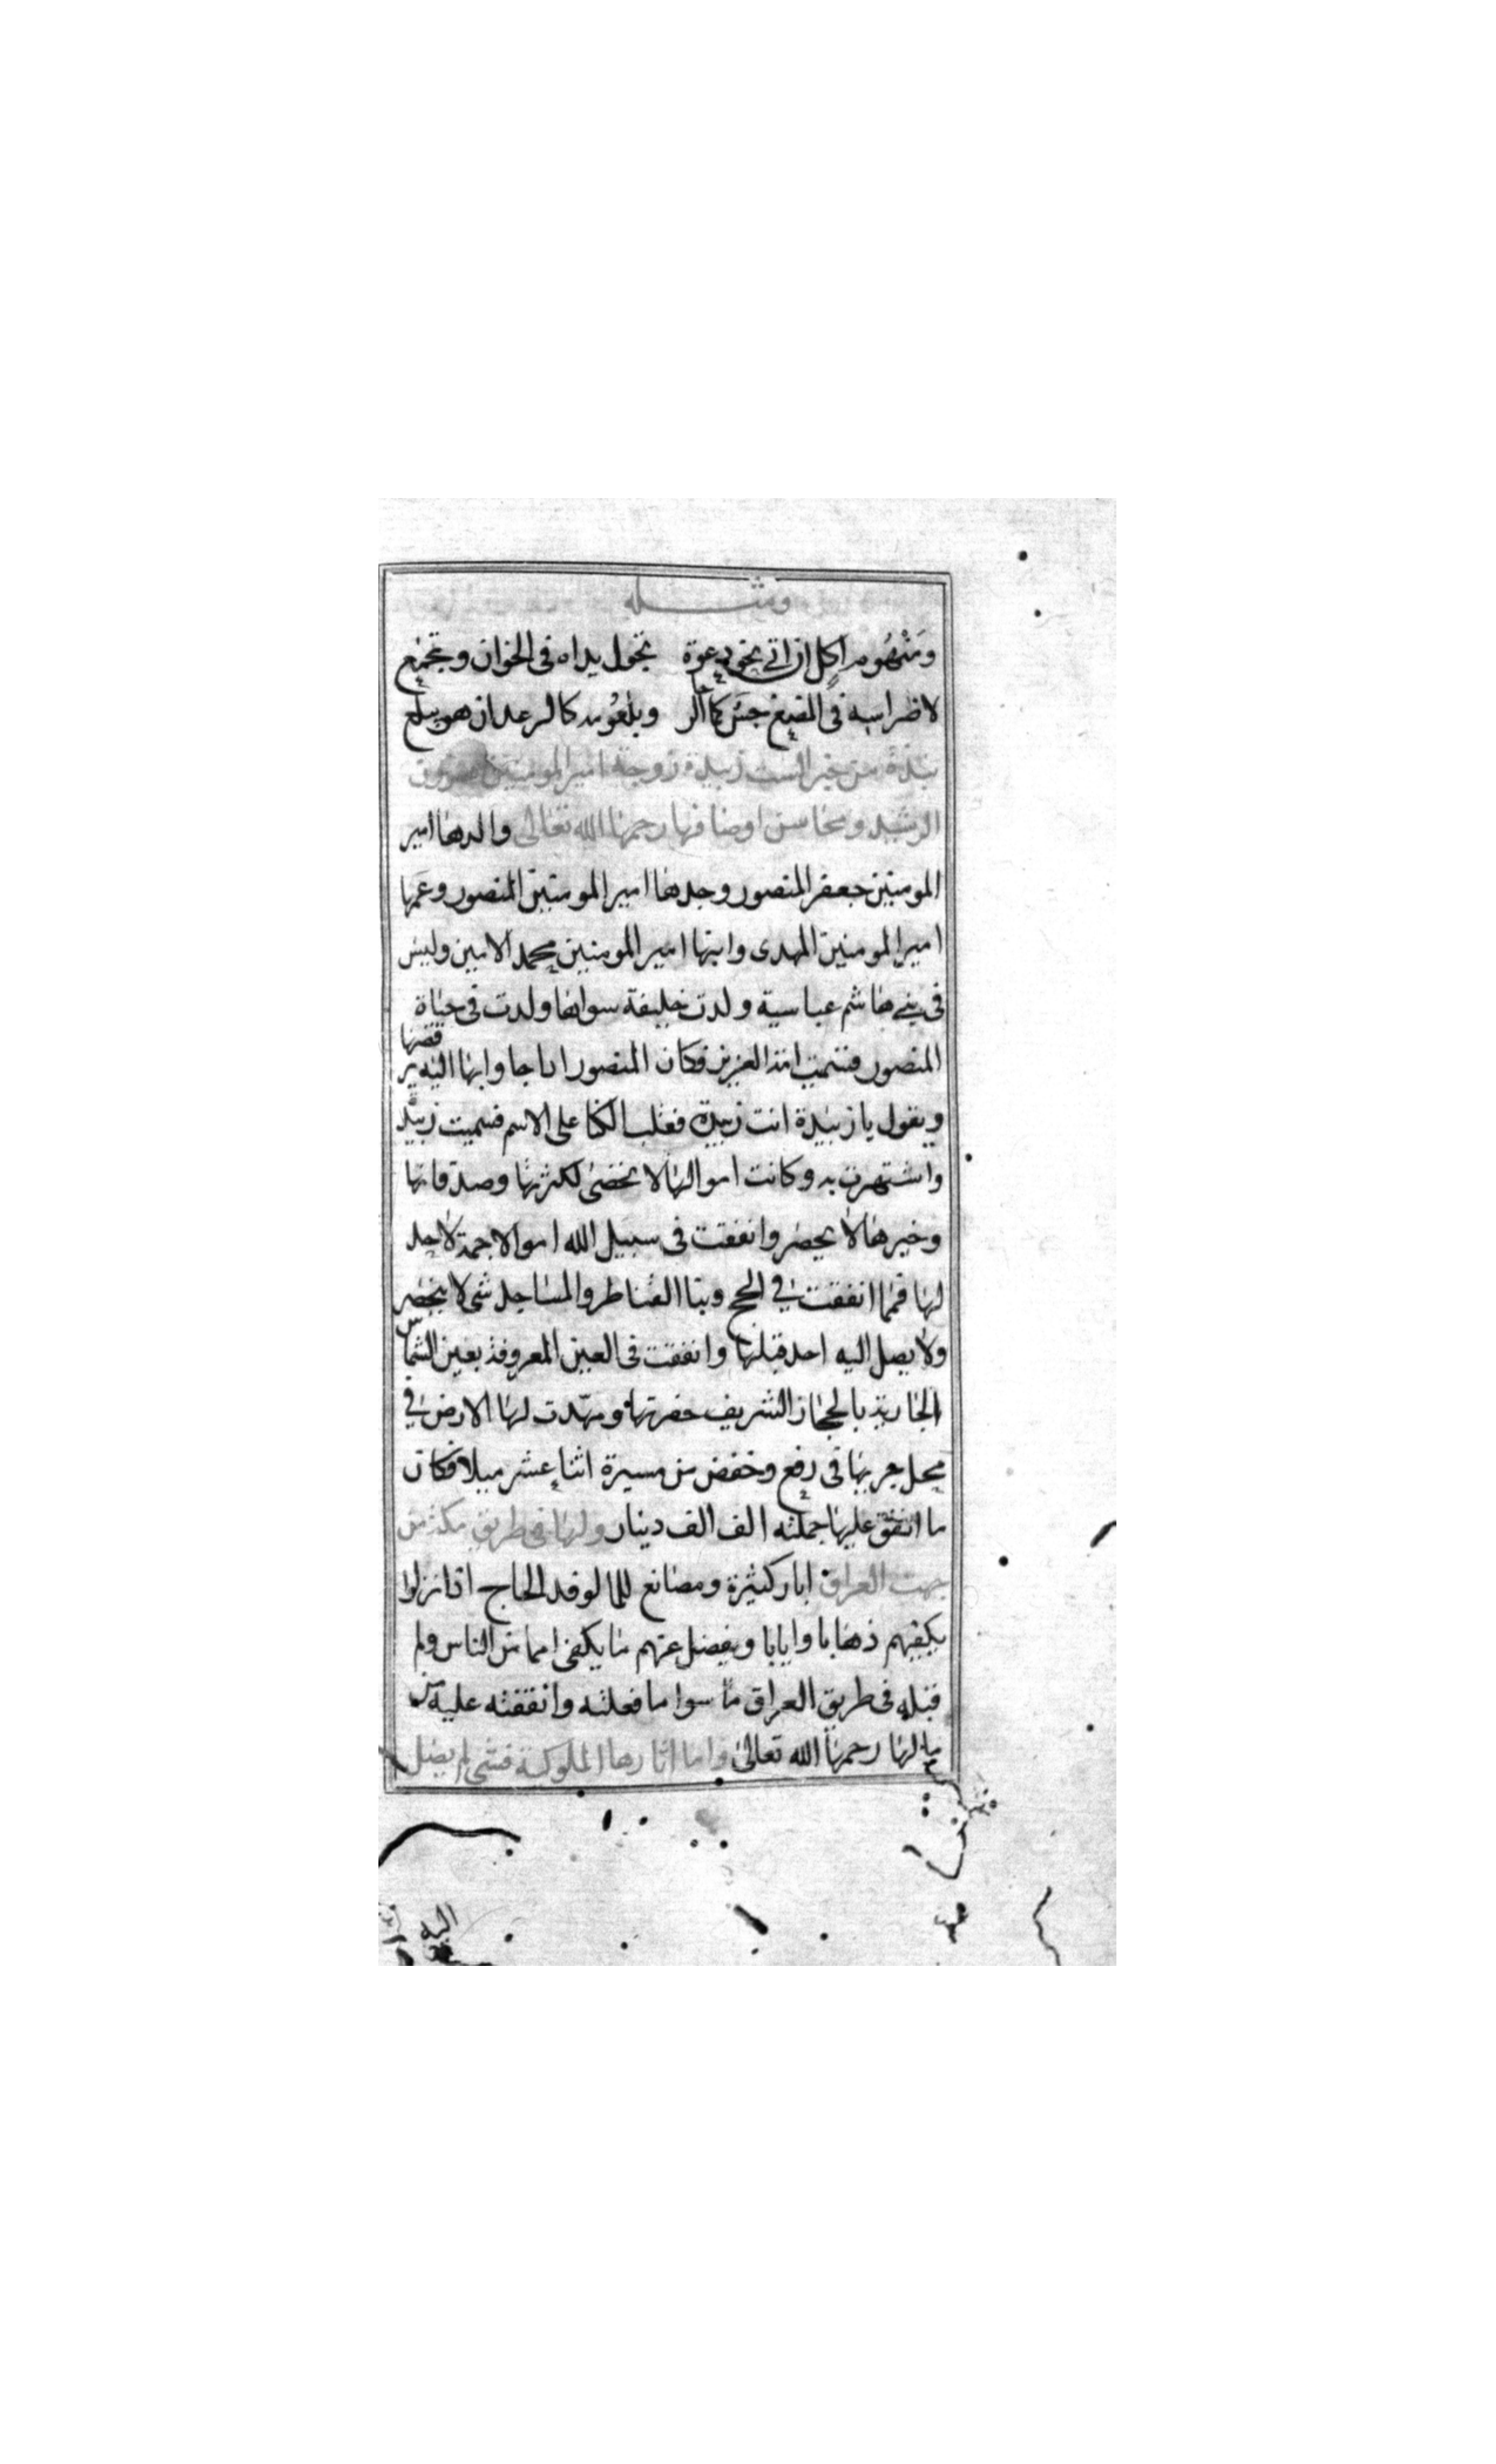 ومثله
ومنهوم اكل ان اتى نحو دعوة تجول يداه فى الخوان وتجمع
لاضراسه فى المضغ جش كما الرحا وبلعومه كالرعد ان هو يبلع
نبذة من خبر الست زبيدة زوجة امير المومنين هرون
الرشيد ومحاسن اوصافها رحمها الله تعالى والدها امير
المومنين جعفر المنصور وجدها امير المومنين المنصور وعمها
امير المومنين المهدى وابنها امير المومنين محمد الامين وليس
فى بنى هاشم عباسية ولدت خليفة سواها ولدت فى حياة
المنصور فسميت امة العزيز فكان المنصور اذا جاوابها اليه يرقصها
ويقول يا زبيدة انت زبيدة فغلب الكنا على الاسم فسميت زبيدة
واشتهرت به وكانت اموالها لا تحصى لكثرتها وصدقاتها
وخيرها لا يحصر وانفقت فى سبيل الله اموالا جمة لاجل
لها فمما انفقت فى الحج وبنا القناطر والمساجد شى لا ينحصر
ولا يصل اليه احد قبلها وانفقت فى العين المعروفة بعين الشماس
الجارية بالحجاز الشريف حفرتها ومهدت لها الارض فى
محل جريها فى رفع وخفض من مسيرة اثنا عشر ميلا فكان
ما انفق عليها جملته الف الف دينار ولها فى طريق مكة من
جهت العراق ابار كثيرة ومصانع للما لوفد الحاج اذا نزلوا
يكفيهم ذهابا وايابا ويفضل عنهم ما يكفى امما من الناس ولم
قبله فى طريق العراق ما سوا ما فعلته وانفقته عليه من
مالها رحمها الله تعالى واما اثارها الملوكية فشى لم يصل
اليه